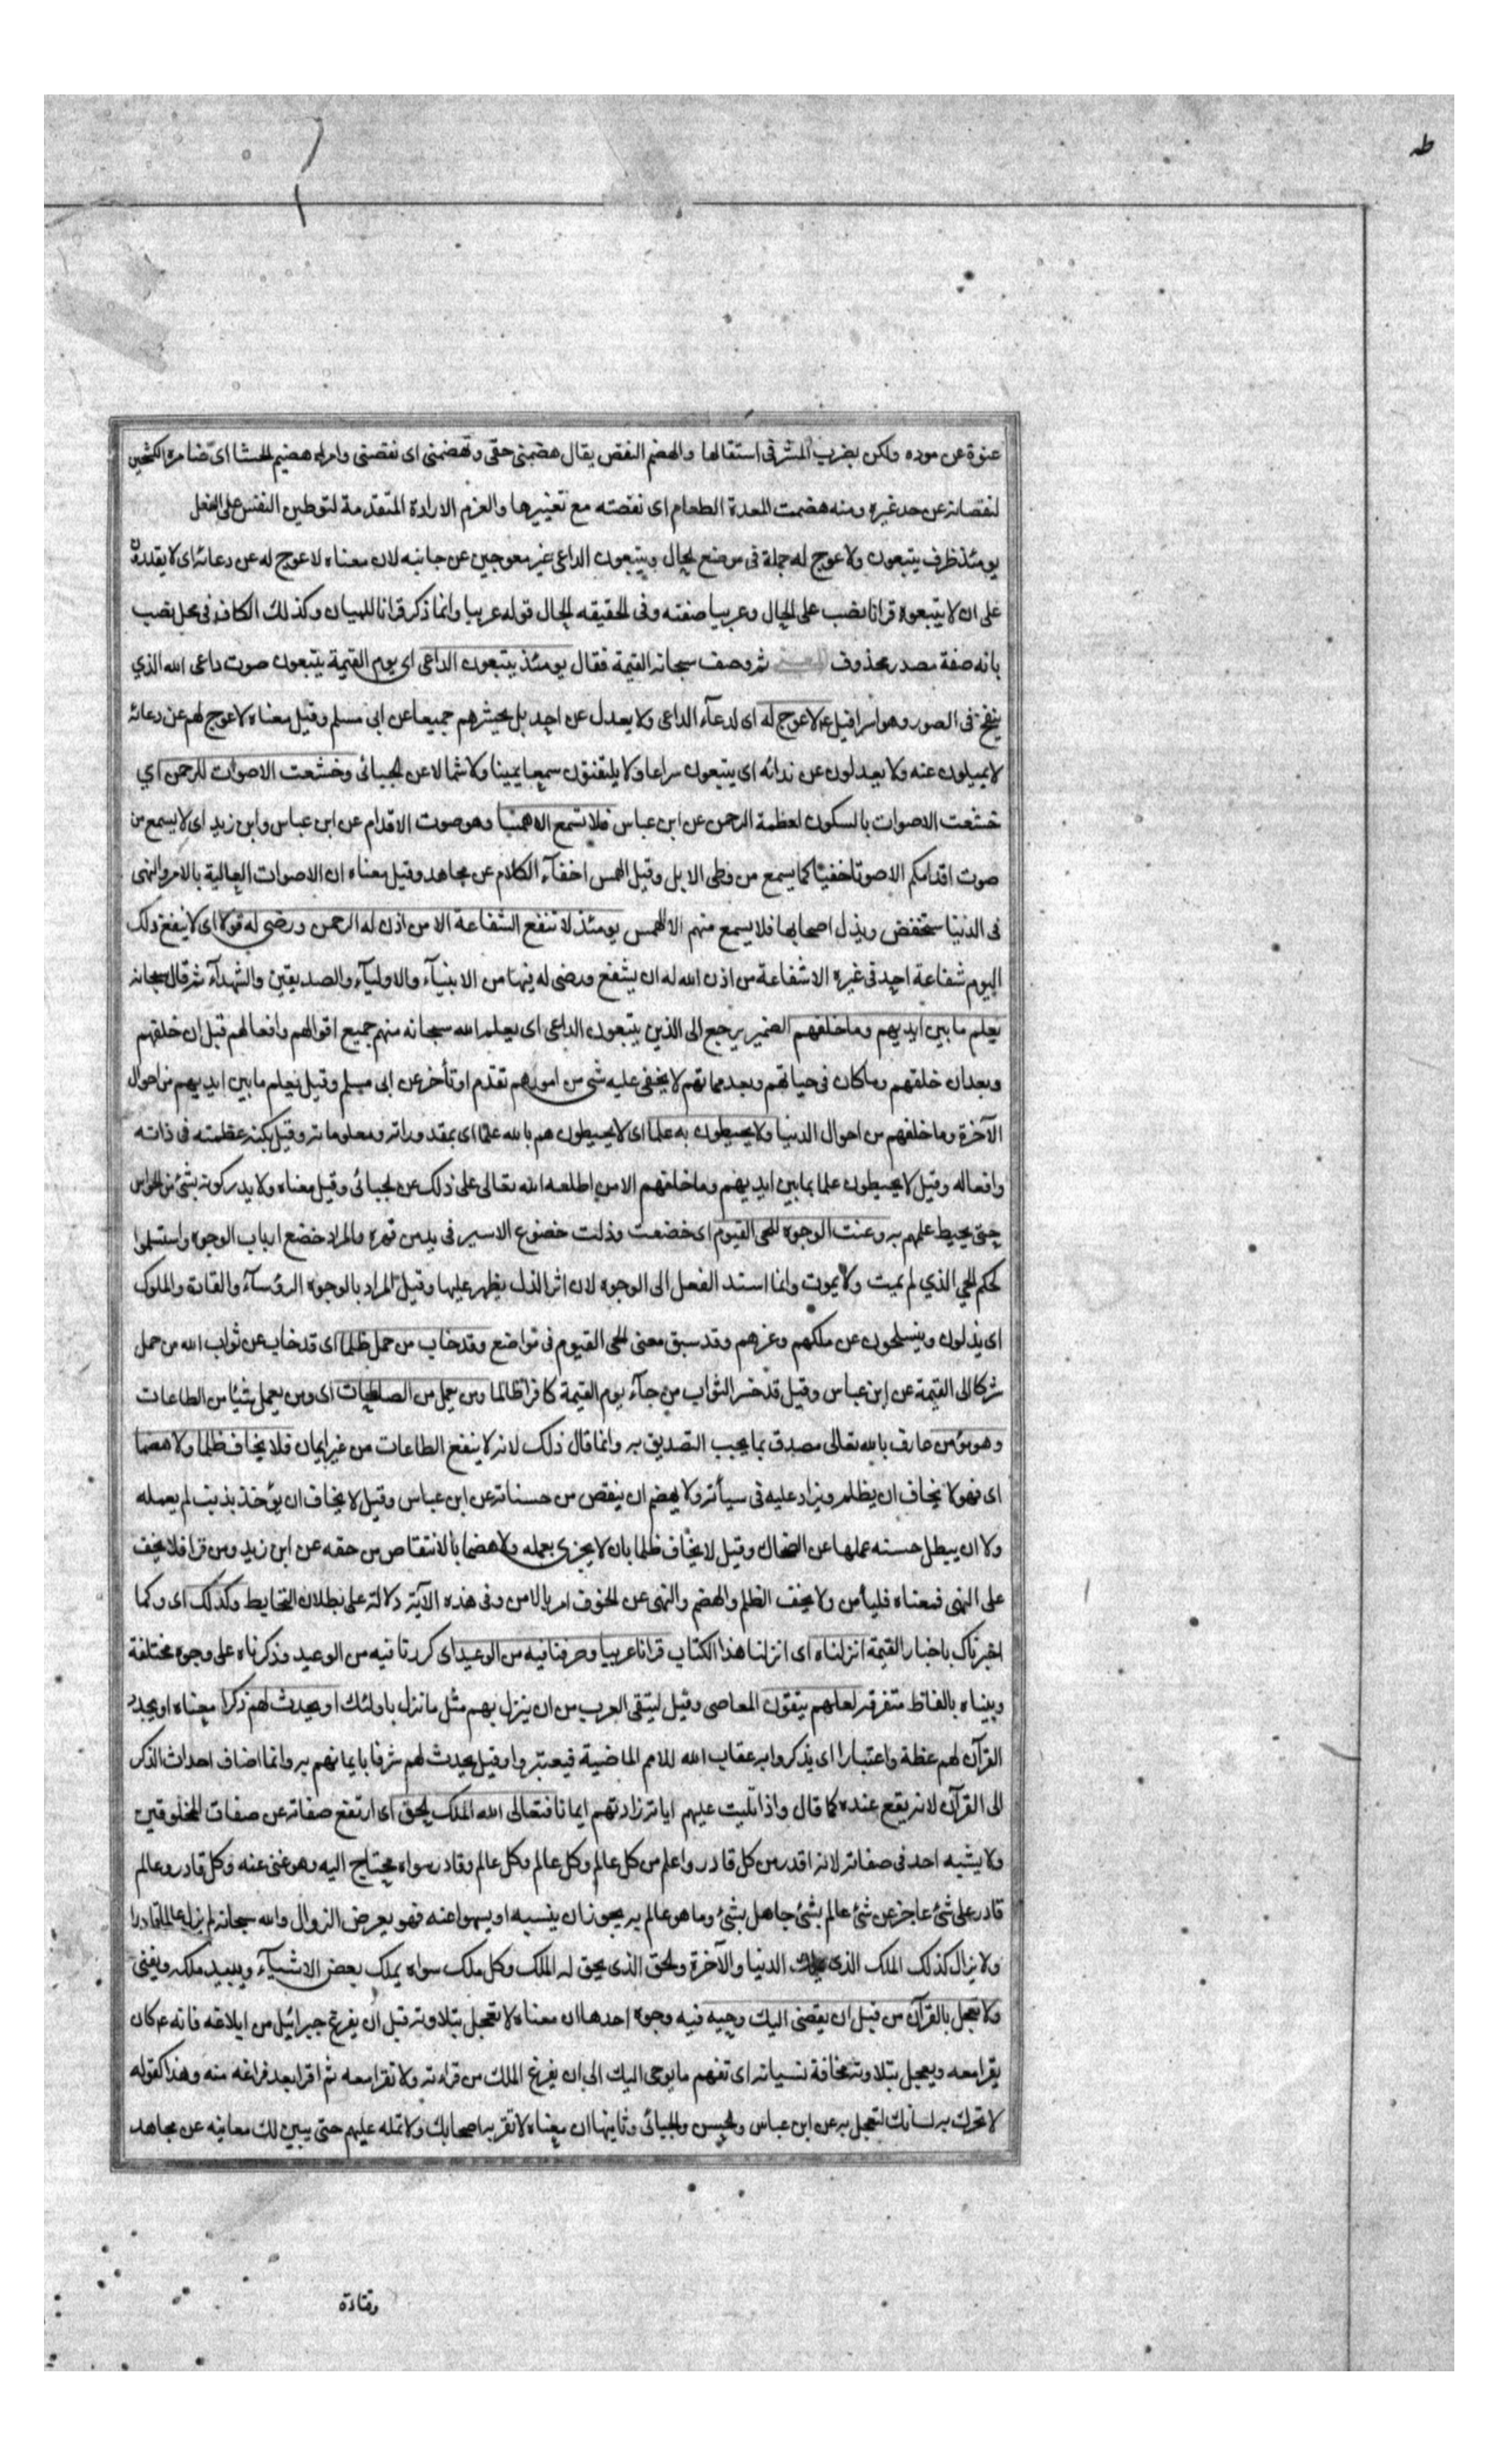 طه
عنوة عن موده ولكن بضرب المشرفى استقالها والهضم النقص يقال هضمنى حقى وتهضمنى اى نقصنى وامراه هضيم الحشا اى ضامرة الكشحين
لنقصانه عن حد غيره ومنه هضمت المعدة الطعام اى نقصته مع تغييرها والعزم الارادة المتقدمة لتوطين النفس على الفعل
يومئذ ظرف يتبعون ولا عوج له جملة فى موضع الحال ويتبعون الداعى غير معوجين عن جانبه لان معناه لا عوج له عن دعائه اى لا يقدرون
على ان لا يتبعوه قرانا نصب على الحال وعربيا صفته وفى الحقيقه الحال قوله عربيا وانما ذكر قرانا للبيان وكذلك الكاف فى محل نصب
بانه صفة مصدر محذوف ثم وصف سبحانه القيمة فقال يومئذ يتبعون الداعى اى يوم القيمة يتبعون صوت داعى الله الذي
ينفخ فى الصور وهو اسرافيل ع لا عوج له اى لدعآء الداعى ولا يعدل عن احد بل يحشرهم جميعا عن ابى مسلم وقيل معناه لا عوج لهم عن دعائه
لا يميلون عنه ولا يعدلون عن ندائه اى يتبعون سراعا ولا يلتفتون سمعا يمينا ولا شمالا عن الجبائى وخشعت الاصوات للرحمن اي
خشعت الاصوات بالسكون لعظمة الرحمن عن ابن عباس فلا تسمع الا همسا وهو صوت الاقدام عن ابن عباس وابن زيد اى لا يسمع من
صوت اقدامكم الا صوتا خفيا كما يسمع من وطى الابل وقيل الهمس اخفآء الكلام عن مجاهد وقيل معناه ان الاصوات العالية بالامر والنهى
فى الدنيا ستخفض ويذل اصحابها فلا يسمع منهم الا الهمس يومئذ لا تنفع الشفاعة الا من اذن له الرحمن ورضى له قولا اى لا ينفع ذلك
اليوم شفاعة احد فى غيره الا شفاعة من اذن الله له ان يشفع ورضى له فيها من الانبيآء والاوليآء والصديقين والشهدآء ثم قال سبحانه
يعلم ما بين ايديهم وما خلفهم الضمير يرجع الى الذين يتبعون الداعى اى يعلم الله سبحانه منهم جميع اقوالهم وافعالهم قبل ان خلقهم
وبعد ان خلقهم وما كان فى حياتهم وبعد مماتهم لا يخفى عليه شى من امورهم تقدم او تأخر عن ابى مسلم وقيل يعلم ما بين ايديهم من احوال
الآخرة وما خلفهم من احوال الدنيا ولا يحيطون به علما اى لا يحيطون هم بالله علما اى بمقدوراته ومعلوماته وقيل بكنه عظمته فى ذاته
وافعاله وقيل لا يحيطون علما بما بين ايديهم وما خلفهم الا من اطلعه الله تعالى على ذلك عن الجبائى وقيل معناه ولا يدركونه بشئ من الحواس
حتى يحيط علمهم به وعنت الوجوه للحى القيوم اى خضعت وذلت خضوع الاسير فى يد من قهره والمراد خضع ارباب الوجوه واستسلموا
لحكم الحي الذي لم يمت ولا يموت وانما اسند الفعل الى الوجوه لان اثر الذل يظهر عليها وقيل المراد بالوجوه الرؤسآء والقادة والملوك
اى يذلون وينسلخون عن ملكهم وعزهم وقد سبق معنى الحى القيوم فى مواضع وقد خاب من حمل ظلما اى قد خاب عن ثواب الله من حمل
شركا الى القيمة عن ابن عباس وقيل قد خسر الثواب من جآء يوم القيمة كافرا ظالما ومن يعمل من الصالحات اى ومن يعمل شيئا من الطاعات
وهو مؤمن عارف بالله تعالى مصدق بما يجب التصديق به وانما قال ذلك لانه لا ينفع الطاعات من غير ايمان فلا يخاف ظلما ولا هضما
اى فهو لا يخاف ان يظلم ويزاد عليه فى سيأته ولا يهضم ان ينقص من حسناته عن ابن عباس وقيل لا يخاف ان يؤخذ بذنب لم يعمله
ولا ان يبطل حسنه عملها عن الضحاك وقيل لا يخاف ظلما بان لا يجزى بعمله ولا هضما بالانتقاص من حقه عن ابن زيد ومن قرا فلا يخف
على النهى فمعناه فليأمن ولا يخف الظلم والهضم والنهى عن الخوف امر بالامن وفى هذه الآية دلالة على بطلان التحابط وكذلك اى وكما
اخبرناك باخبار القيمة انزلناه اى انزلنا هذا الكتاب قرانا عربيا وصرفنا فيه من الوعيد اى كررنا فيه من الوعيد وذكرناه على وجوه مختلفة
وبيناه بالفاظ متفرقه لعلهم يتقون المعاصى وقيل ليتقى العرب من ان ينزل بهم مثل ما نزل باولئك او يحدث لهم ذكرا معناه او يجدد
القرآن لهم عظة واعتبارا اى يذكروا به عقاب الله للامم الماضية فيعتبروا وقيل يحدث لهم شرفا بايمانهم به وانما اضاف احداث الذكر
الى القرآن لانه يقع عنده كما قال واذا تليت عليهم اياته زادتهم ايمانا فتعالى الله الملك الحق اى ارتفع صفاته عن صفات المخلوقين
ولا يشبه احد فى صفاته لانه اقدر من كل قادر واعلم من كل عالم وكل عالم وكل عالم وقادر سواه محتاج اليه وهو غنى عنه وكل قادر وعالم
قادر على شئ عاجز عن شئ عالم بشئ جاهل بشئ وما هو عالم به يجوز ان ينسيه او يسهوا عنه فهو بعرض الزوال والله سبحانه لم يزل عالما قادرا
ولا يزال كذلك الملك الذى يملك الدنيا والآخرة والحق الذى يحق له الملك وكل ملك سواه يملك بعض الاشيآء ويبيد ملكه ويفنى
ولا تعجل بالقرآن من قبل ان يقضى اليك وحيه فيه وجوه احدها ان معناه لا تعجل بتلاوته قبل ان يفرغ جبرائيل من ابلاغه فانه ع كان
يقرا معه ويعجل بتلاوته مخافة نسيانه اى تفهم ما يوحى اليك الى ان يفرغ الملك من قراته ولا تقرا معه ثم اقرا بعد فراغه منه وهذا كقوله
لا تحرك به لسانك لتعجل به عن ابن عباس والحسن والجبائى وثانيها ان معناه لا تقر به اصحابك ولا تمله عليهم حتى يبين لك معانيه عن مجاهد
وقتادة